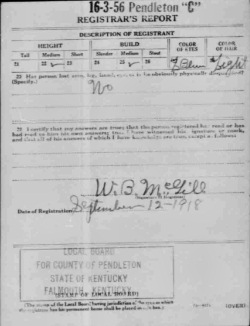 16-3-56 Pendleton "C"
REGISTRAR'S REPORT
DESCRIPTION OF REGISTRANT
HEIGHT BUILD COLOR OF EYES COLOR OF HAIR
Tall Medium Short Slender Medium Stout
21 22 23 24 25 26 27 Blue Light
29 Has person lost arm, leg, hand, or is he obviously physically disqualified?
(Specify.)
No
30 I certify that my answers are true; that the person registered has read or has
had read to him his own answers; that I have witnessed his signature or mark,
and that all of his answers of which I have knowledge are true, except as follows:
W. B. McGill
Date of Registration September 12-1918
LOCAL BOARD
FOR COUNTY OF PENDLETON
STATE OF KENTUCKY
FALMOUTH, KENTUCKY
(STAMP OF LOCAL BOARD)
(The stamp of the Local Board having jurisdiction of the area in which
the registrant has his permanent home shall be placed in this box.)
(OVER)